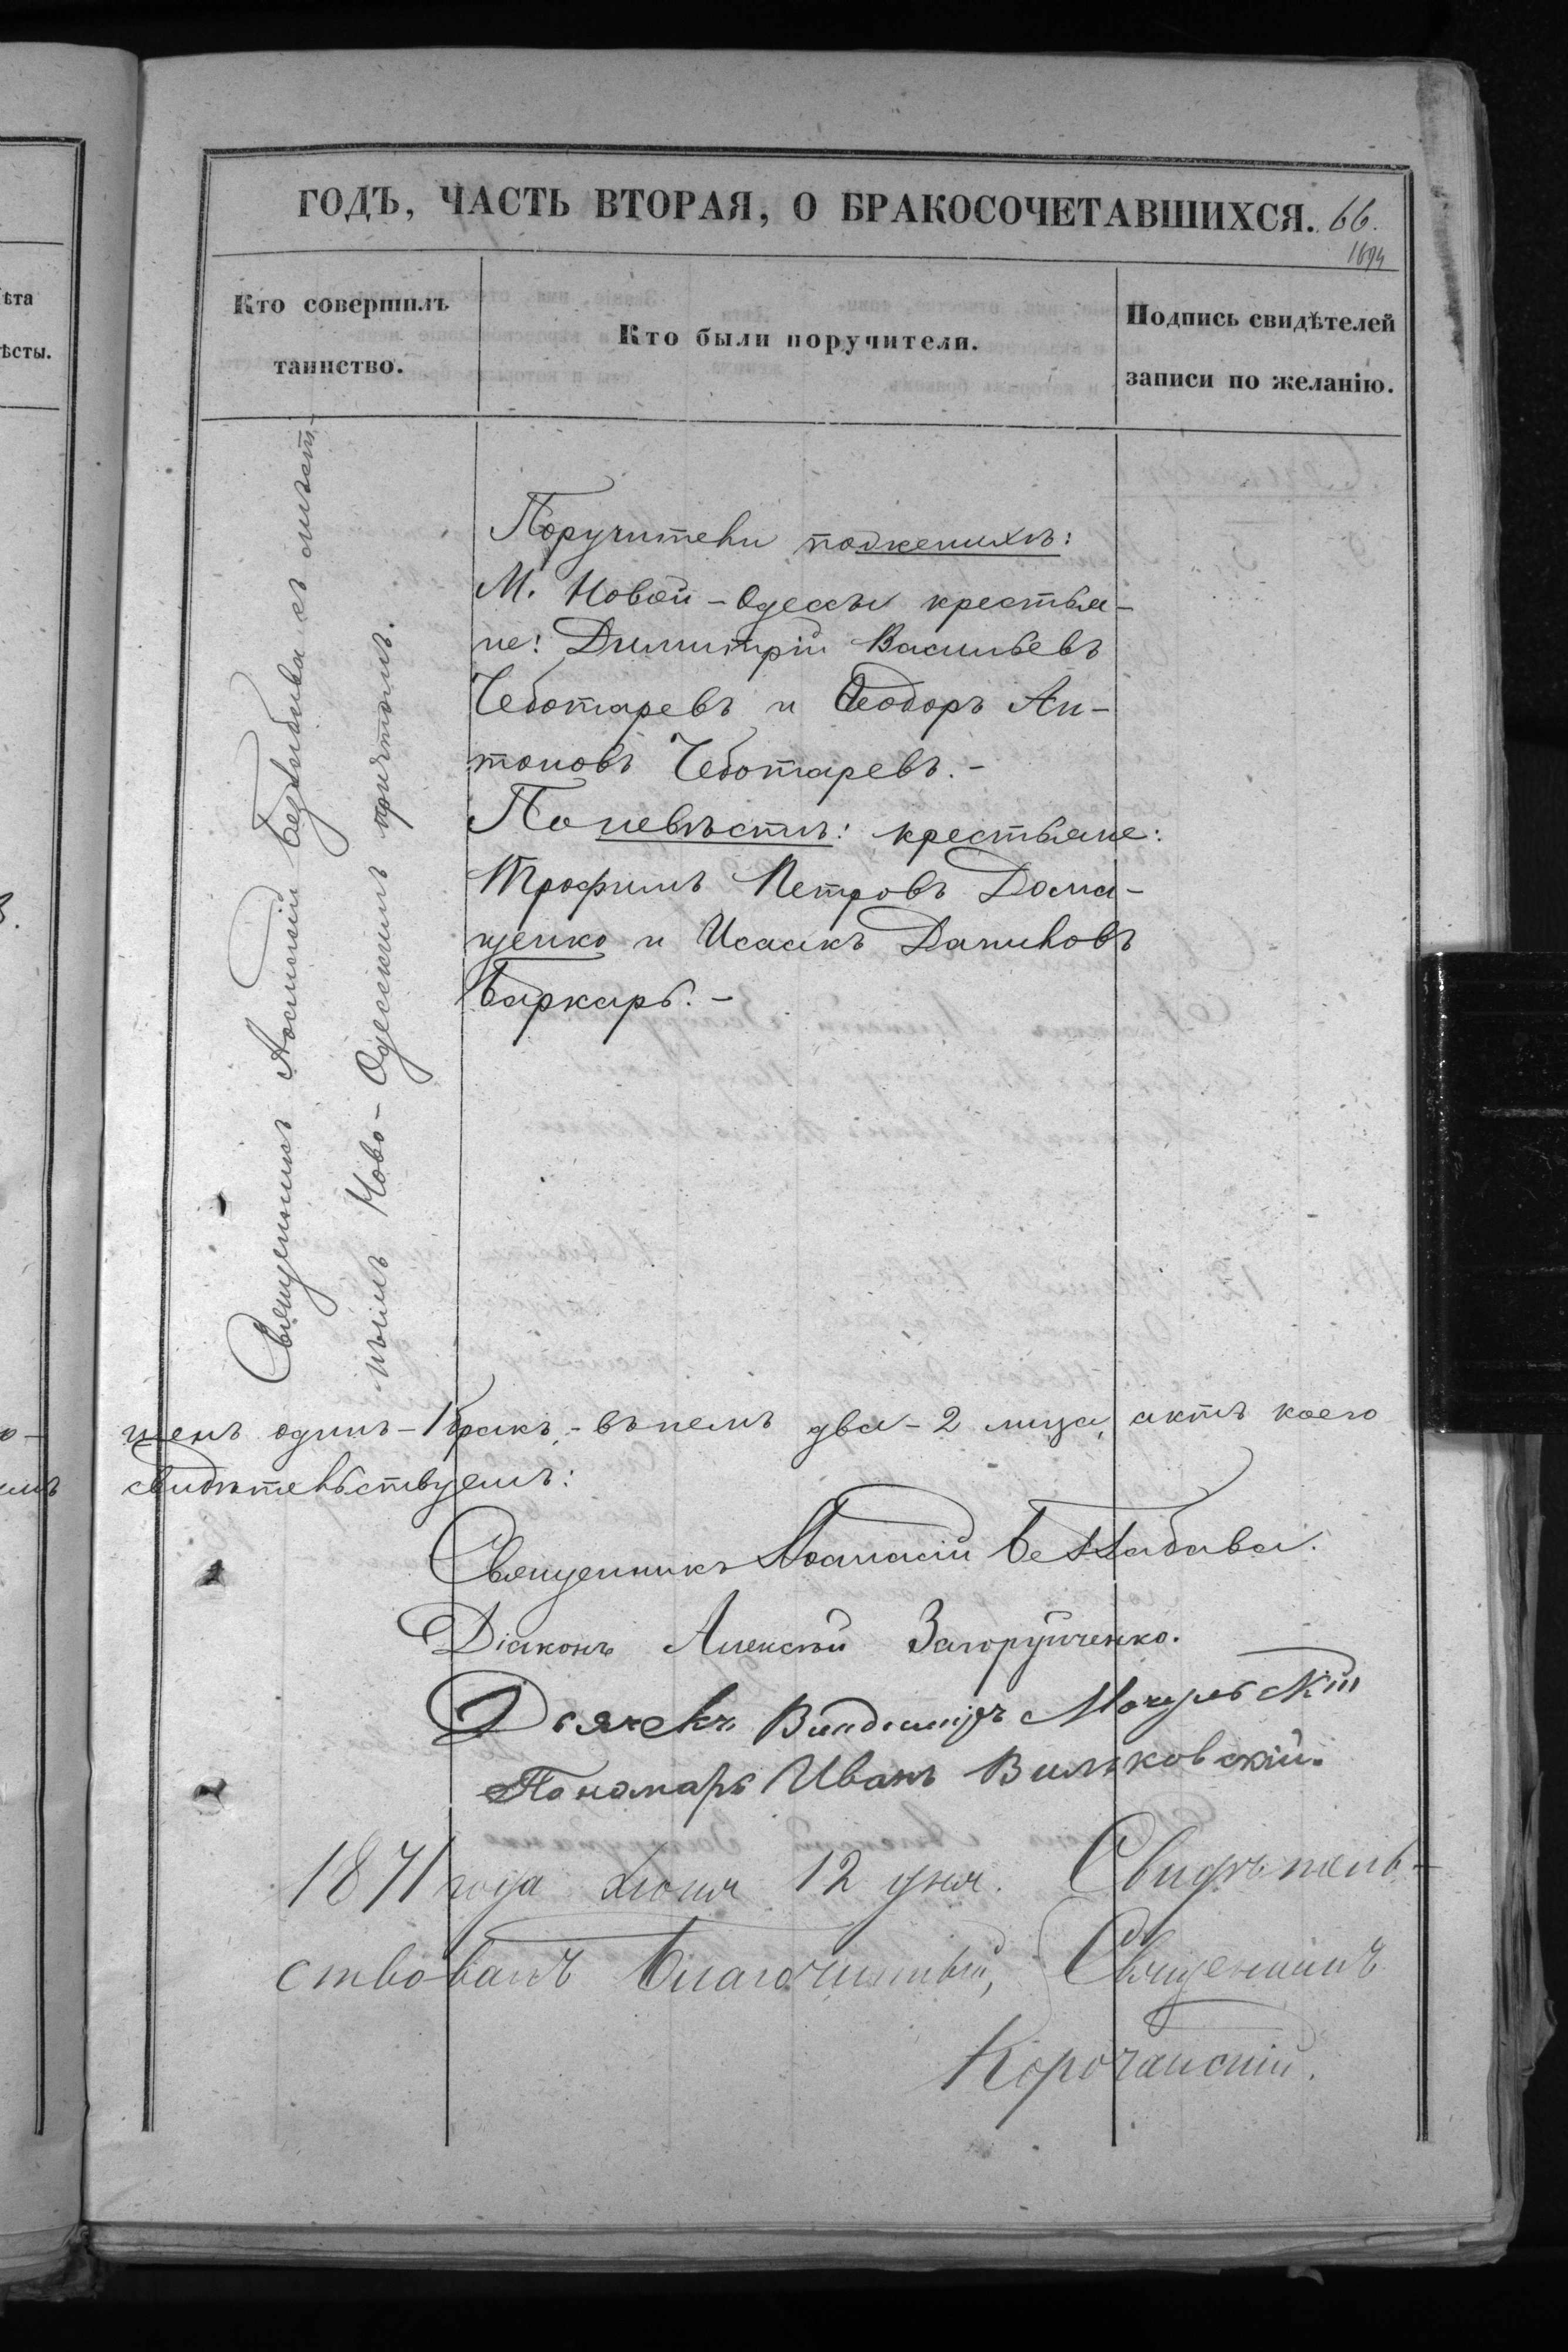 ГОДЪ, ЧАСТЬ ВТОРАЯ, О БРАКОСОЧЕТАВШИХСЯ. 66.
1694
Кто совершилъ
таинство.
Кто были поручители.
Подпись свидѣтелей
записи по желанію.
ѣта
ѣсты.
Священникъ Аѳанасій Беззабава съ мѣст-
нымъ Ново-Одесскимъ причтомъ.
Поручители пожениху:
М. Новой-Одессы крестья-
не: Димитрій Васильевъ
Чеботаревъ и Ѳеодоръ Ан-
тоновъ Чеботаревъ.-
Поневѣстѣ: крестьяне:
Трофимъ Петровъ Дома-
щенко и Исаакъ Даниловъ
Баркарь.-
шенъ одинъ-1 бракъ,-въ немъ два-2 лица, актъ коего
свидѣтельствуемъ:
Священникъ Аѳанасій Беззабава.
Діаконъ Алексѣй Загоруйченко.
Дьячекъ Владимиръ
Пономарь Иванъ Вильковскій.
1871 года Іюня 12 дня. Свидѣтель-
ствовалъ Благочинный, Священникъ
Корочанскій.